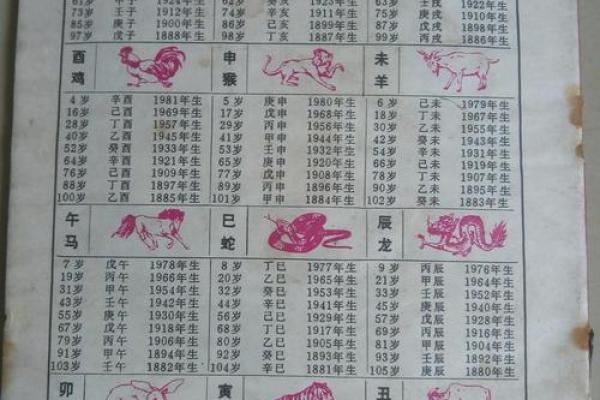 61岁 甲子 1924年生
73岁 壬子 1912年生
85岁 庚子 1900年生
97岁 戊子 1888年生
62岁 癸亥 1923年生
74岁 辛亥 1911年生
86岁 己亥 1899年生
98岁 丁亥 1887年生
63岁 壬戌 1922年生
75岁 庚戌 1910年生
87岁 戊戌 1898年生
99岁 丙戌 1886年生
酉
鸡
4岁 辛酉 1981年生
16岁 己酉 1969年生
28岁 丁酉 1957年生
40岁 乙酉 1945年生
52岁 癸酉 1933年生
64岁 辛酉 1921年生
76岁 己酉 1909年生
88岁 丁酉 1897年生
100岁 乙酉 1885年生
申
猴
5岁 庚申 1980年生
17岁 戊申 1968年生
29岁 丙申 1956年生
41岁 甲申 1944年生
53岁 壬申 1932年生
65岁 庚申 1920年生
77岁 戊申 1908年生
89岁 丙申 1896年生
101岁 甲申 1884年生
未
羊
6岁 己未 1979年生
18岁 丁未 1967年生
30岁 乙未 1955年生
42岁 癸未 1943年生
54岁 辛未 1931年生
66岁 己未 1919年生
78岁 丁未 1907年生
90岁 乙未 1895年生
102岁 癸未 1883年生
午
马
7岁 戊午 1978年生
19岁 丙午 1966年生
31岁 甲午 1954年生
43岁 壬午 1942年生
55岁 庚午 1930年生
67岁 戊午 1918年生
79岁 丙午 1906年生
91岁 甲午 1894年生
103岁 壬午 1882年生
巳
蛇
8岁 丁巳 1977年生
20岁 乙巳 1965年生
32岁 癸巳 1953年生
44岁 辛巳 1941年生
56岁 己巳 1929年生
68岁 丁巳 1917年生
80岁 乙巳 1905年生
92岁 癸巳 1893年生
104岁 辛巳 1881年生
辰
龙
9岁 丙辰 1976年生
21岁 甲辰 1964年生
33岁 壬辰 1952年生
45岁 庚辰 1940年生
57岁 戊辰 1928年生
69岁 丙辰 1916年生
81岁 甲辰 1904年生
93岁 壬辰 1892年生
105岁 庚辰 1880年生
卯
寅
丑